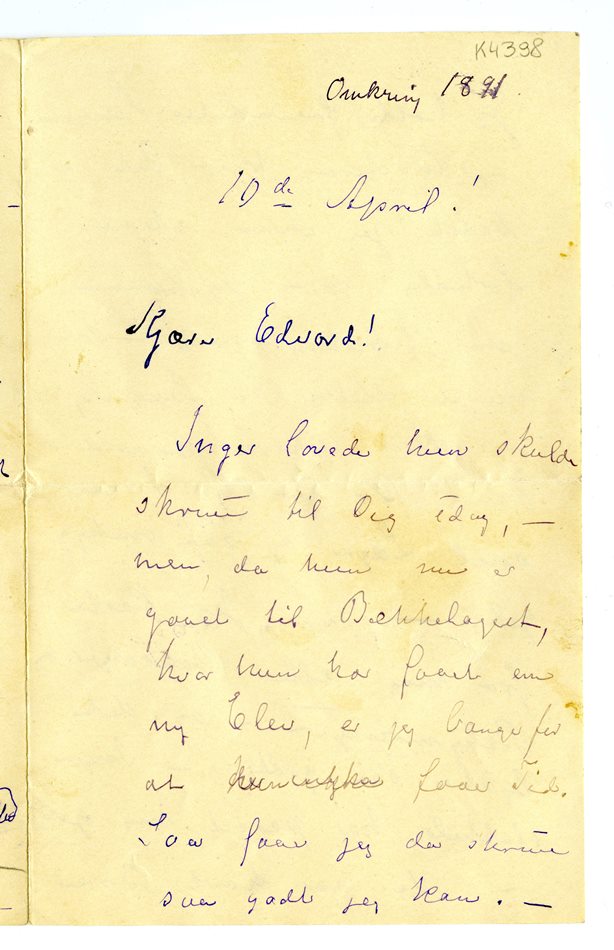 K4398
Omkring 1891.
10 de April!
Kjære Edvard!
Inger lovede hun skulde
skrive til Dig idag, –
men, da hun nu er
gaaet til Bækkelaget,
hvor hun har faaet en
ny Elev, er jeg bange for
at hun ikke faaer Tid.
Saa faar jeg da skrive
saa godt jeg kan. –